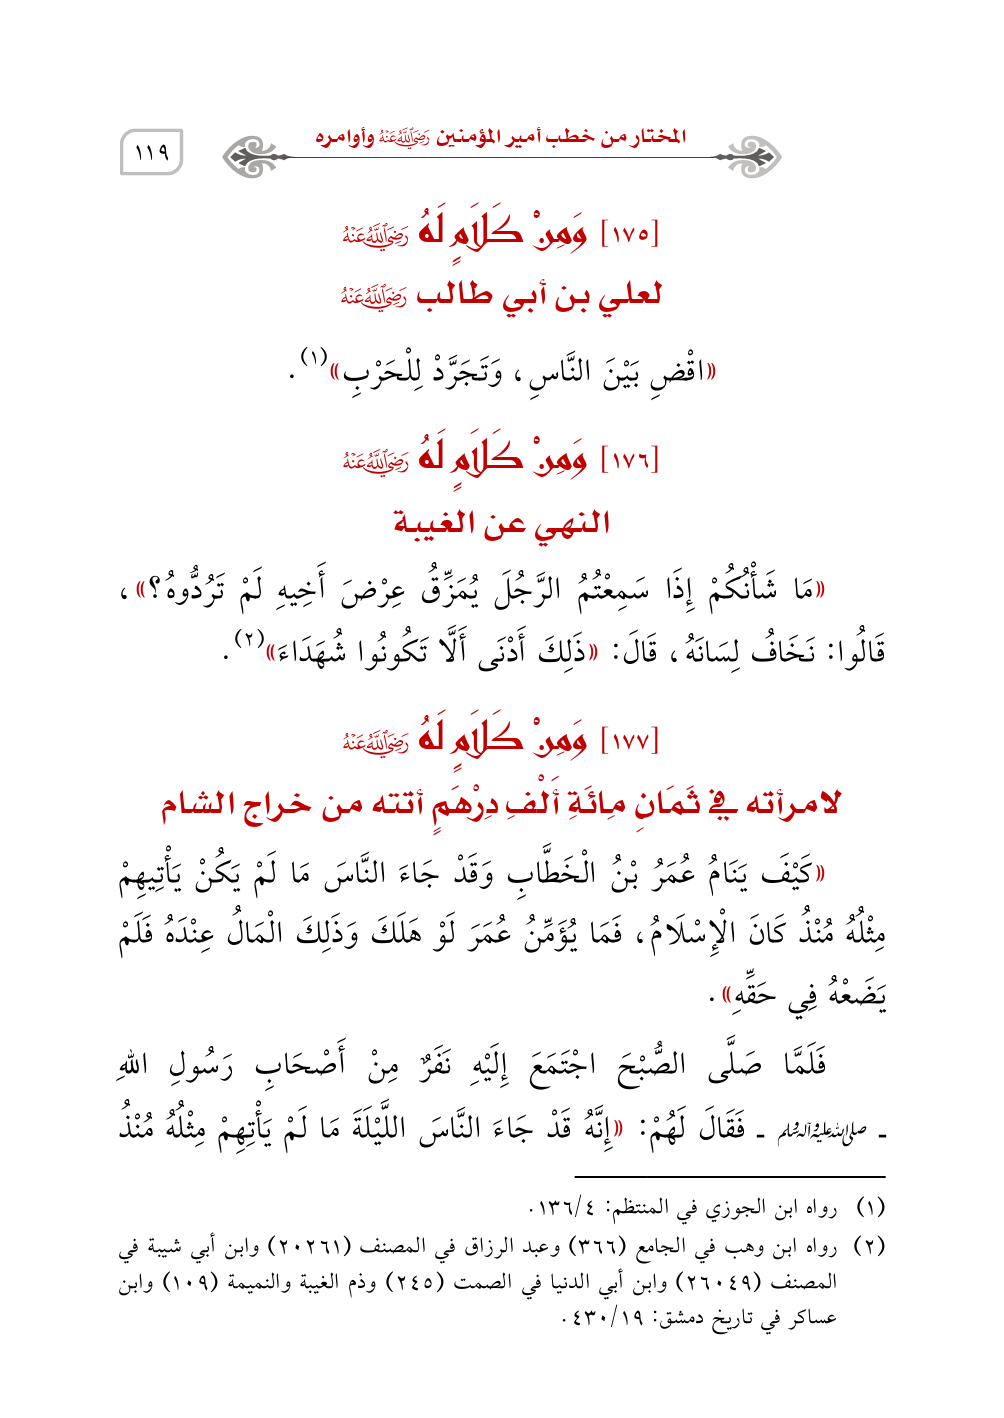 المختار من خطب أمير المؤمنين رَضِيَ اللَّهُ عَنْهُ وأوامره
١١٩
[١٧٥] وَمِنْ كَلَامٍ لَهُ رَضِيَ اللَّهُ عَنْهُ
لعلي بن أبي طالب رَضِيَ اللَّهُ عَنْهُ
«اقْضِ بَيْنَ النَّاسِ، وَتَجَرَّدْ لِلْحَرْبِ»(١).
[١٧٦] وَمِنْ كَلَامٍ لَهُ رَضِيَ اللَّهُ عَنْهُ
النهي عن الغيبة
«مَا شَأْنُكُمْ إِذَا سَمِعْتُمُ الرَّجُلَ يُمَزِّقُ عِرْضَ أَخِيهِ لَمْ تَرُدُّوهُ؟»،
قَالُوا: نَخَافُ لِسَانَهُ، قَالَ: «ذَلِكَ أَدْنَى أَلَّا تَكُونُوا شُهَدَاءَ»(٢).
[١٧٧] وَمِنْ كَلَامٍ لَهُ رَضِيَ اللَّهُ عَنْهُ
لامرأته في ثَمَانِ مِائَةِ أَلْفِ دِرْهَمٍ أتته من خراج الشام
«كَيْفَ يَنَامُ عُمَرُ بْنُ الْخَطَّابِ وَقَدْ جَاءَ النَّاسَ مَا لَمْ يَكُنْ يَأْتِيهِمْ
مِثْلُهُ مُنْذُ كَانَ الْإِسْلَامُ، فَمَا يُؤَمِّنُ عُمَرَ لَوْ هَلَكَ وَذَلِكَ الْمَالُ عِنْدَهُ فَلَمْ
يَضَعْهُ فِي حَقِّهِ».
فَلَمَّا صَلَّى الصُّبْحَ اجْتَمَعَ إِلَيْهِ نَفَرٌ مِنْ أَصْحَابِ رَسُولِ اللهِ
ـ صلى الله عليه وآله وسلم ـ فَقَالَ لَهُمْ: «إِنَّهُ قَدْ جَاءَ النَّاسَ اللَّيْلَةَ مَا لَمْ يَأْتِهِمْ مِثْلُهُ مُنْذُ
(١) رواه ابن الجوزي في المنتظم: ١٣٦/٤.
(٢) رواه ابن وهب في الجامع (٣٦٦) وعبد الرزاق في المصنف (٢٠٢٦١) وابن أبي شيبة في
المصنف (٢٦٠٤٩) وابن أبي الدنيا في الصمت (٢٤٥) وذم الغيبة والنميمة (١٠٩) وابن
عساكر في تاريخ دمشق: ٤٣٠/١٩.